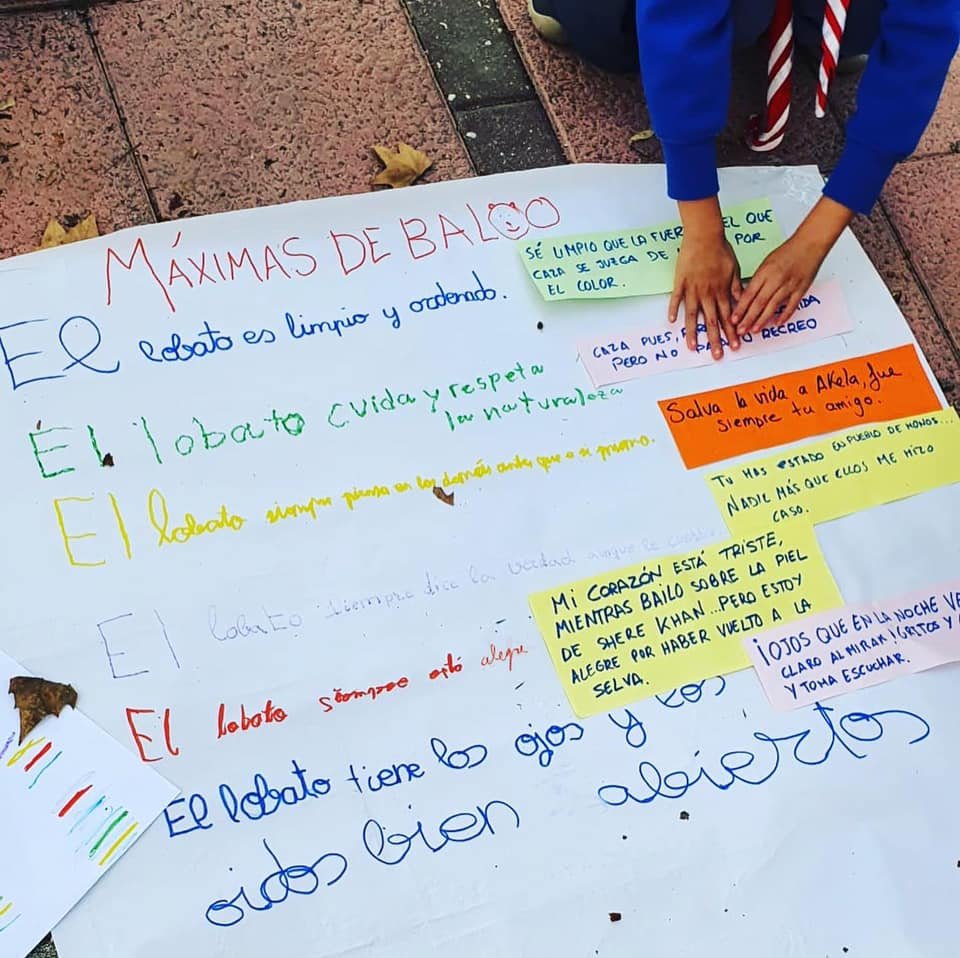 MÁXIMAS DE BALOO
El lobato es limpio y ordenado.
SÉ LIMPIO QUE LA FUER EL QUE
CAZA SE JUZGA DE POR
EL COLOR.
CAZA PUES, PARA VIDA
PERO NO PARA RECREO
ÉL lobato cuida y respeta
la naturaleza
Salva la vida a AKela, fue
siempre tu amigo.
El lobato siempre piensa en los demás antes que a si mismo.
TU HAS ESTADO EN PUEBLO DE MONOS...
NADIE MÁS QUE ELLOS ME HIZO
CASO.
El lobato siempre dice la verdad aunque le
MI CORAZÓN ESTÁ TRISTE,
MIENTRAS BAILO SOBRE LA PIEL
DE SHERE KHAN...PERO ESTOY
ALEGRE POR HABER VUELTO A LA
SELVA.
El lobato siempre está alegre
¡OJOS QUE EN LA NOCHE VE
CLARO AL MIRAR! GRITOS Y
Y TOMA ESCUCHAR.
El lobato tiene los ojos y los
oidos bien abiertos